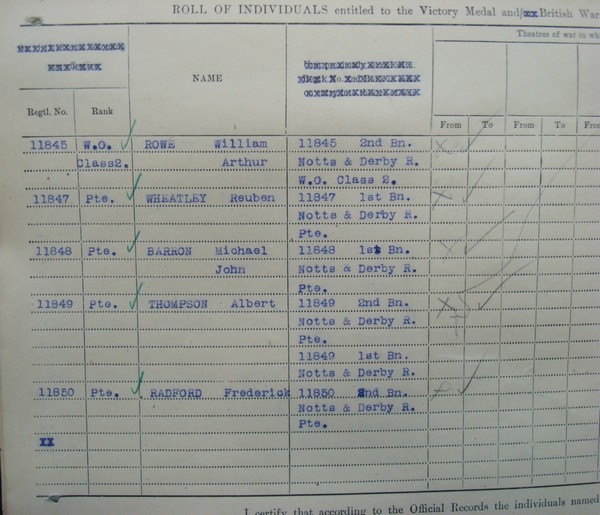 ROLL OF INDIVIDUALS entitled to the Victory Medal and/ British War
Theatres of war in
NAME
Regtl. No. Rank
From To From To From
11845 W.O. ROWE William 11845 2nd Bn.
Class2. Arthur Notts & Derby R.
W.O. Class 2.
11847 Pte. WHEATLEY Reuben 11847 1st Bn.
Notts & Derby R.
Pte.
11848 Pte. BARRON Michael 11848 1st Bn.
John Notts & Derby R.
Pte.
11849 Pte. THOMPSON Albert 11849 2nd Bn.
Notts & Derby R.
Pte.
11849 1st Bn.
Notts & Derby R.
11850 Pte. RADFORD Frederick 11850 2nd Bn.
Notts & Derby R.
Pte.
I certify that according to the Official Records the individuals named